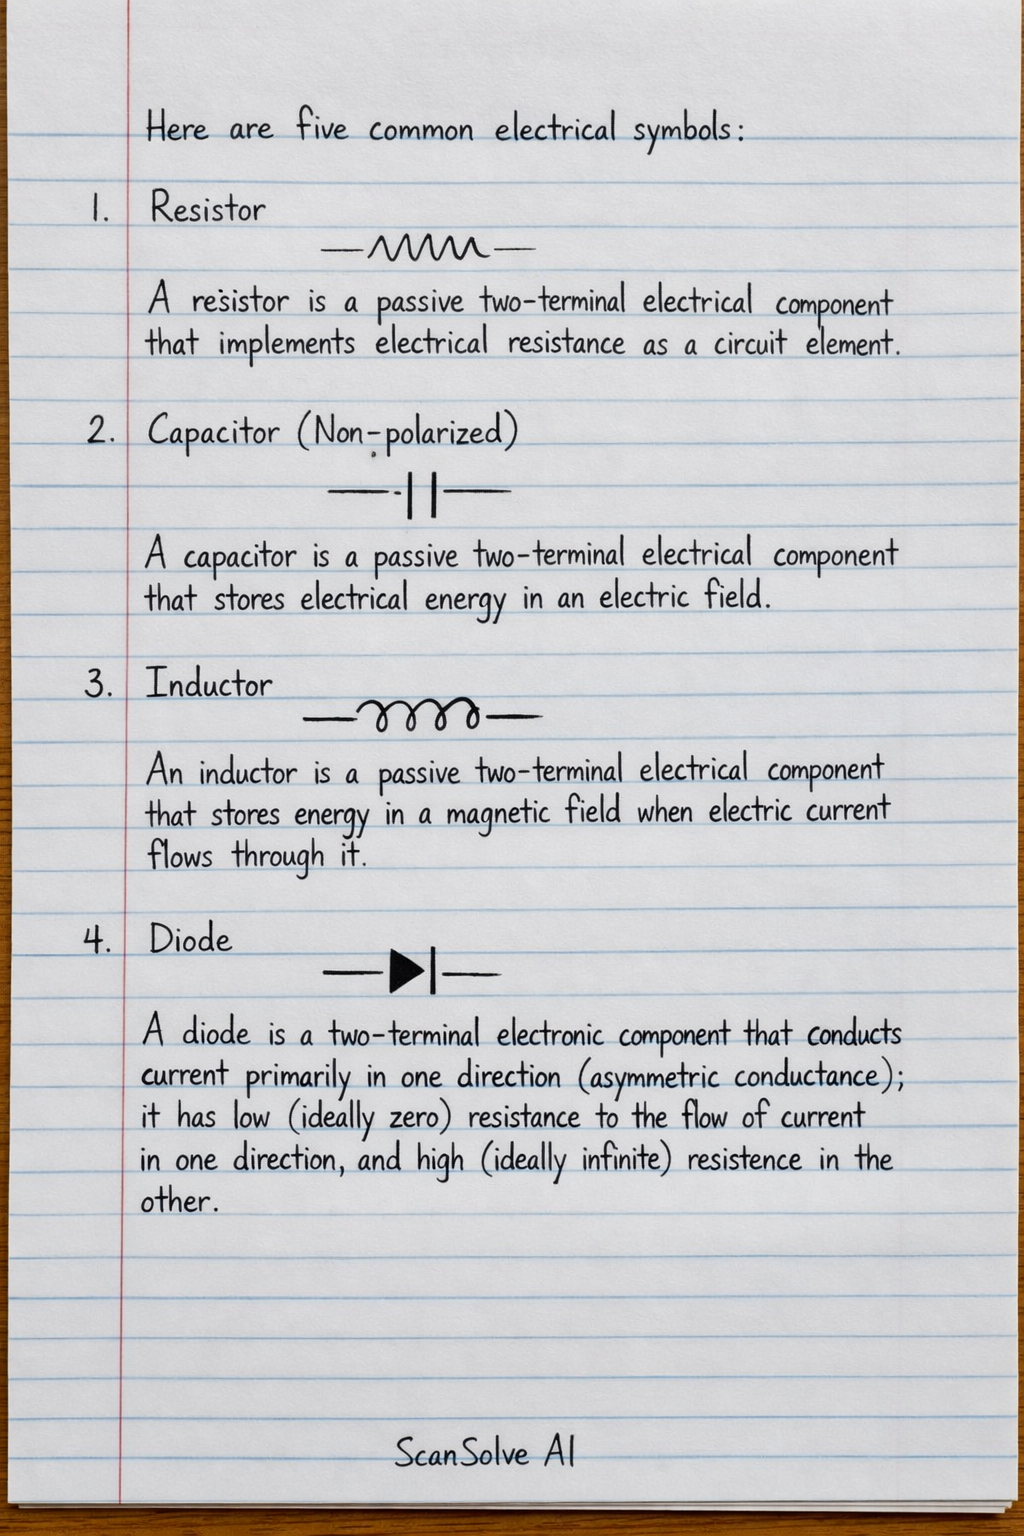 Here are five common electrical symbols:
1. Resistor
A resistor is a passive two-terminal electrical component
that implements electrical resistance as a circuit element.
2. Capacitor (Non-polarized)
A capacitor is a passive two-terminal electrical component
that stores electrical energy in an electric field.
3. Inductor
An inductor is a passive two-terminal electrical component
that stores energy in a magnetic field when electric current
flows through it.
4. Diode
A diode is a two-terminal electronic component that conducts
current primarily in one direction (asymmetric conductance);
it has low (ideally zero) resistance to the flow of current
in one direction, and high (ideally infinite) resistence in the
other.
ScanSolve AI